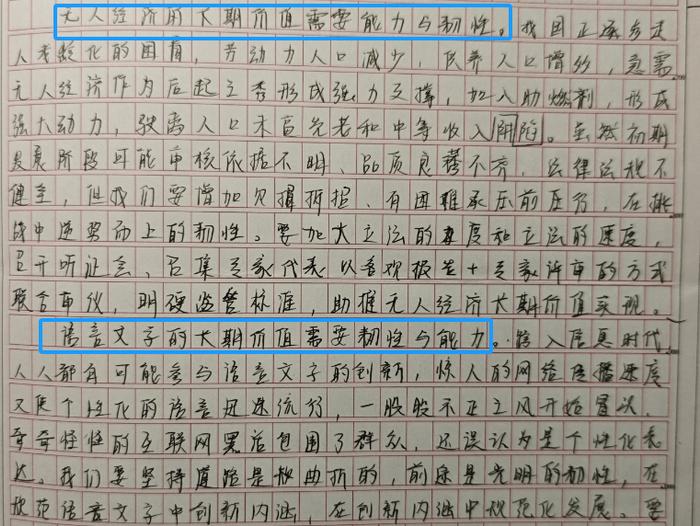 无人经济的长期价值需要能力与韧性。我国正逐步走
入老龄化的困局，劳动力人口减少，供养人口增多，急需
无人经济作为后起之秀形成强力支撑，加入助燃剂，形成
强大动力，驶离人口未富先老和中等收入陷阱。虽然初期
发展阶段可能审核依据不明、品质良莠不齐，法律法规不
健全，但我们要增加攻坚拆招、有困难承压前压行，在挑
战中逆势而上的韧性。要加大立法的速度和立法的速度，
召开听证会，召集专家代表以客观报告＋专家评审的方式
联合审议，明确监管标准，助推无人经济长期价值实现。
语言文字的长期价值需要韧性与能力。跨入信息时代
人人都有可能参与语言文字的创新，惊人的网络传播速度
又使个性化的语言迅速流行，一股股不正之风开始冒头，
奇奇怪怪的互联网黑话包围了群众，还误认为是个性化表
达。我们要坚持道路是曲折的，前途是光明的韧性，在
规范语言文字中创新内涵，在创新内涵中规范化发展。要